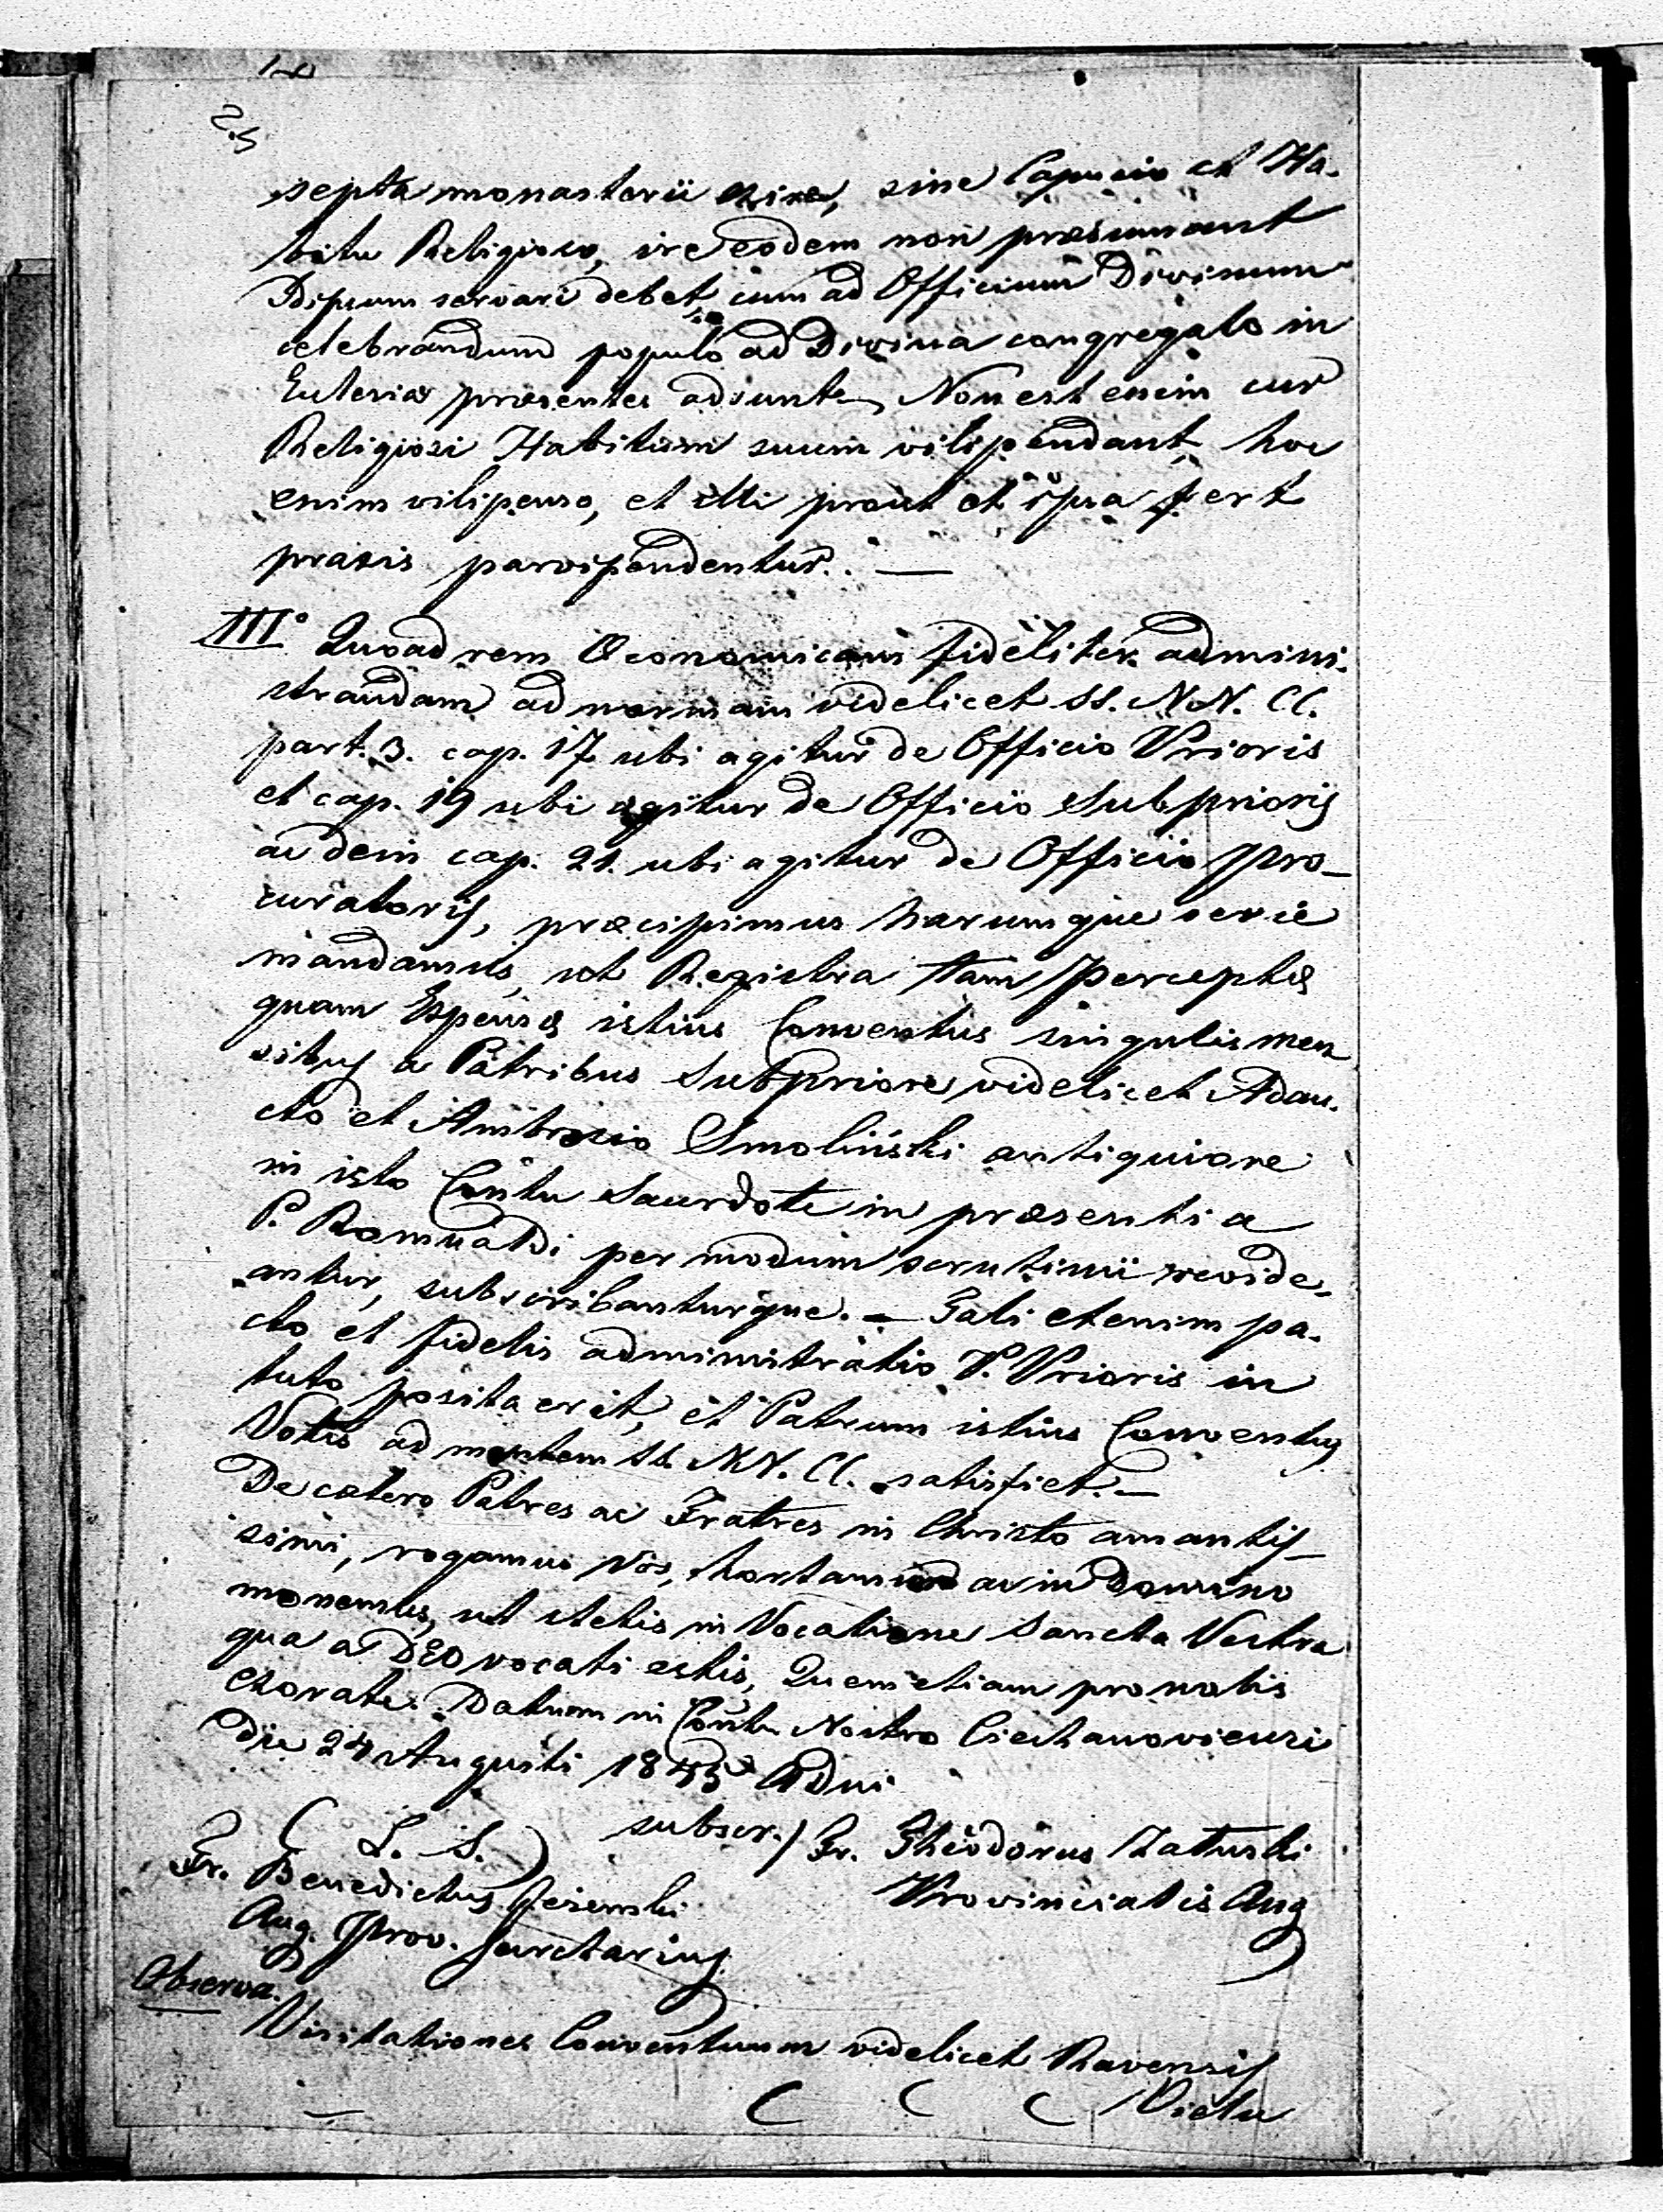 septa monasterii exire, sine Capucio et Ha-
bitu Religioso, ire eodem non præsumant
Idipsum servari debet cum ad Officium Divinum
celebrandum populo ad Divina congregato in
Eclesia præsentes adsunt, Non est enim cur
Religiosi Habitum suum vilipendant, hoc
enim vilipenso, et illi prout et ipsa fert
praxis parvipendentur. —
III° Quoad rem Œconomicam fideliter admini-
strandam ad normam videlicet SS. NN. CC.
part. 3. cap. 17 ubi agitur de Officio Prioris
et cap. 19 ubi agitur de Officio Subprioris
ac dein cap. 21. ubi agitur de Officio Pro-
curatoris, præcipimus harumque serie
mandamus, ut Registra tam Perceptæ
quam Expensæ istius Conventus singulis men
sibus a Patribus Subpriore videlicet Adau-
cto et Ambrosio Smoliński antiquiore
in isto Contu Sacerdote in præsentia
P. Romualdi per modum scrutinii revide-
antur, subscribanturque. — Tali etenim pa-
cto et fidelis administratio P. Prioris in
tuto posita erit, et Patrum istius Conventus
Votis ad mentem SS. NN. CC. satisfiet. —
De cætero Patres ac Fratres in Christo amantis-
simi, rogamus Vos, hortamur ac in Domino
monemus, ut stetis in Vocatione Sancta Vestra
qua a DEO vocati estis, Quem etiam pro nobis
exorate. Datum in Contu Nostro Ciechanoviensi
die 24 Augusti 1845 ADni
( L. S. ) subscr./ Fr. Theodorus Załuski
Provincialis Aug
Fr. Benedictus
Aug. Prov. Secretarius
Observa.
Visitationes Conventuum videlicet Ravensis
Vielu